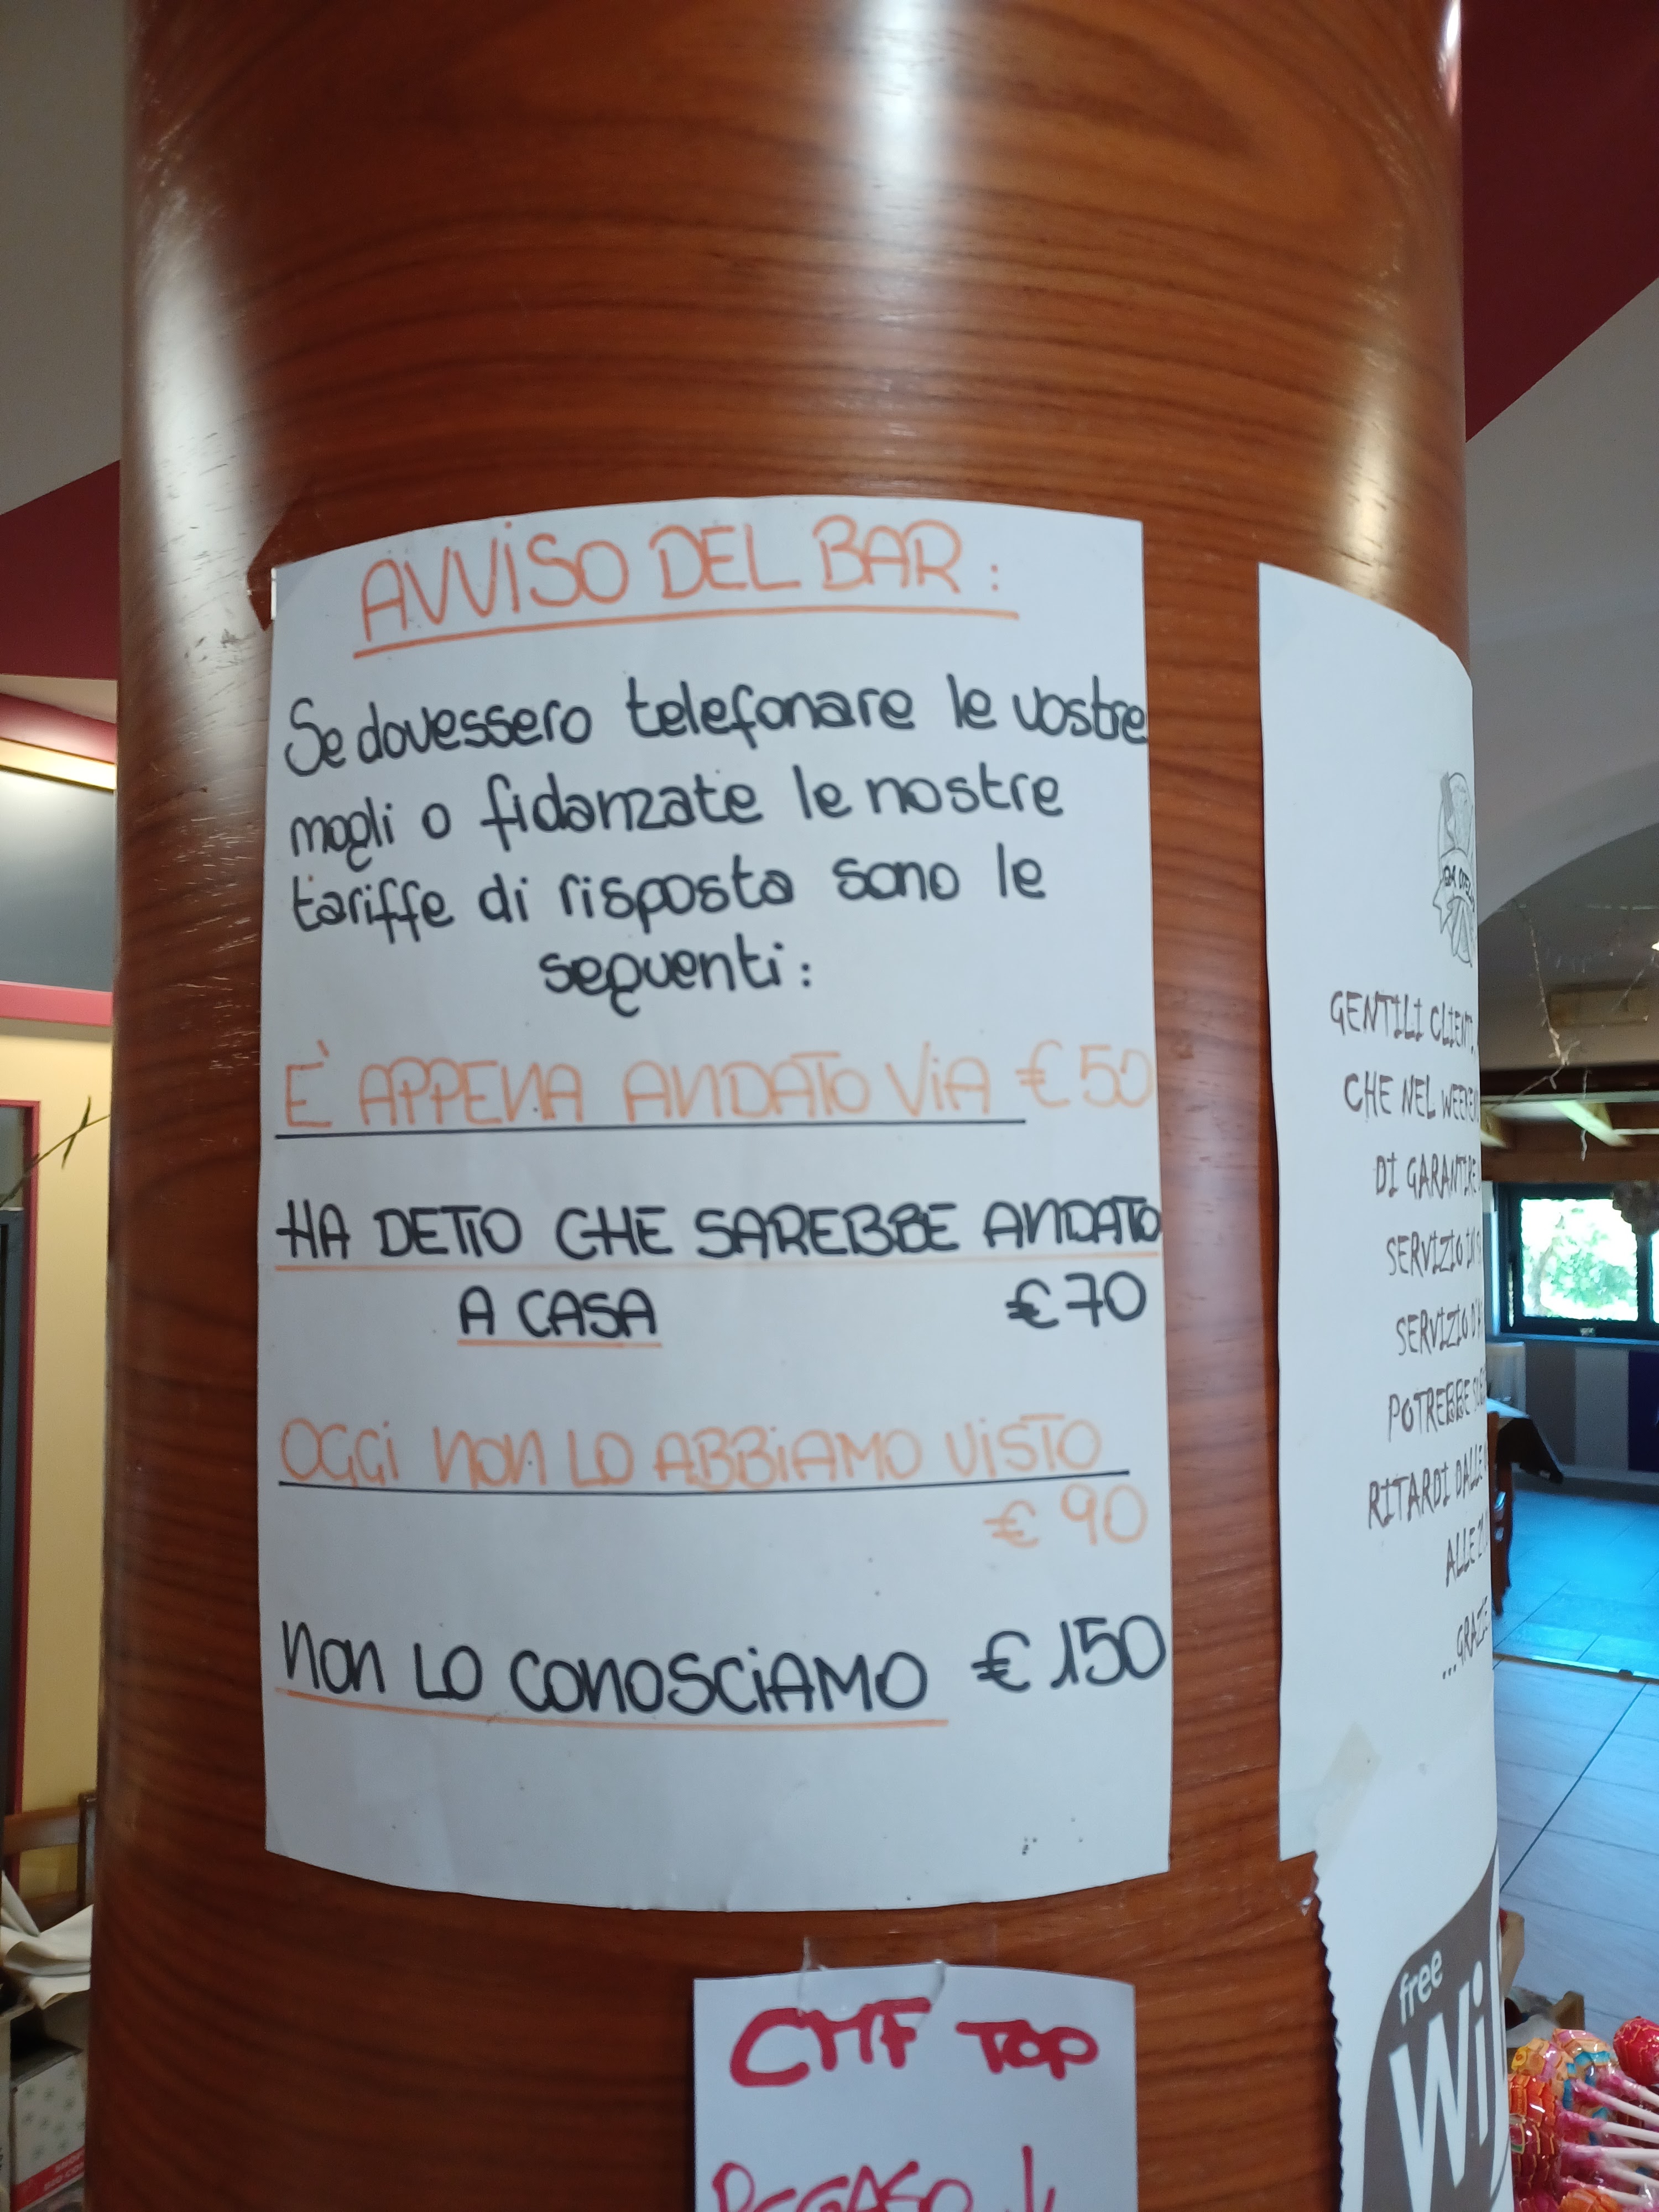 AVVISO DEL BAR:
Se dovessero telefonare le vostre
mogli o fidanzate le nostre
tariffe di risposta sono le
seguenti:
È APPENA ANDATO VIA €50
HA DETTO CHE SAREBBE ANDATO
A CASA €70
OGGI NON LO ABBIAMO VISTO
€ 90
NON LO CONOSCIAMO €150
GENTILI CLIENT
CHE NEL WEEKEN
DI GARANTIRE
SERVIZIO IN
SERVIZIO D'A
POTREBBE
RITARDI DALLE
ALLE
...GRAZIE
free
Wi
CMF TOP
PEGASO